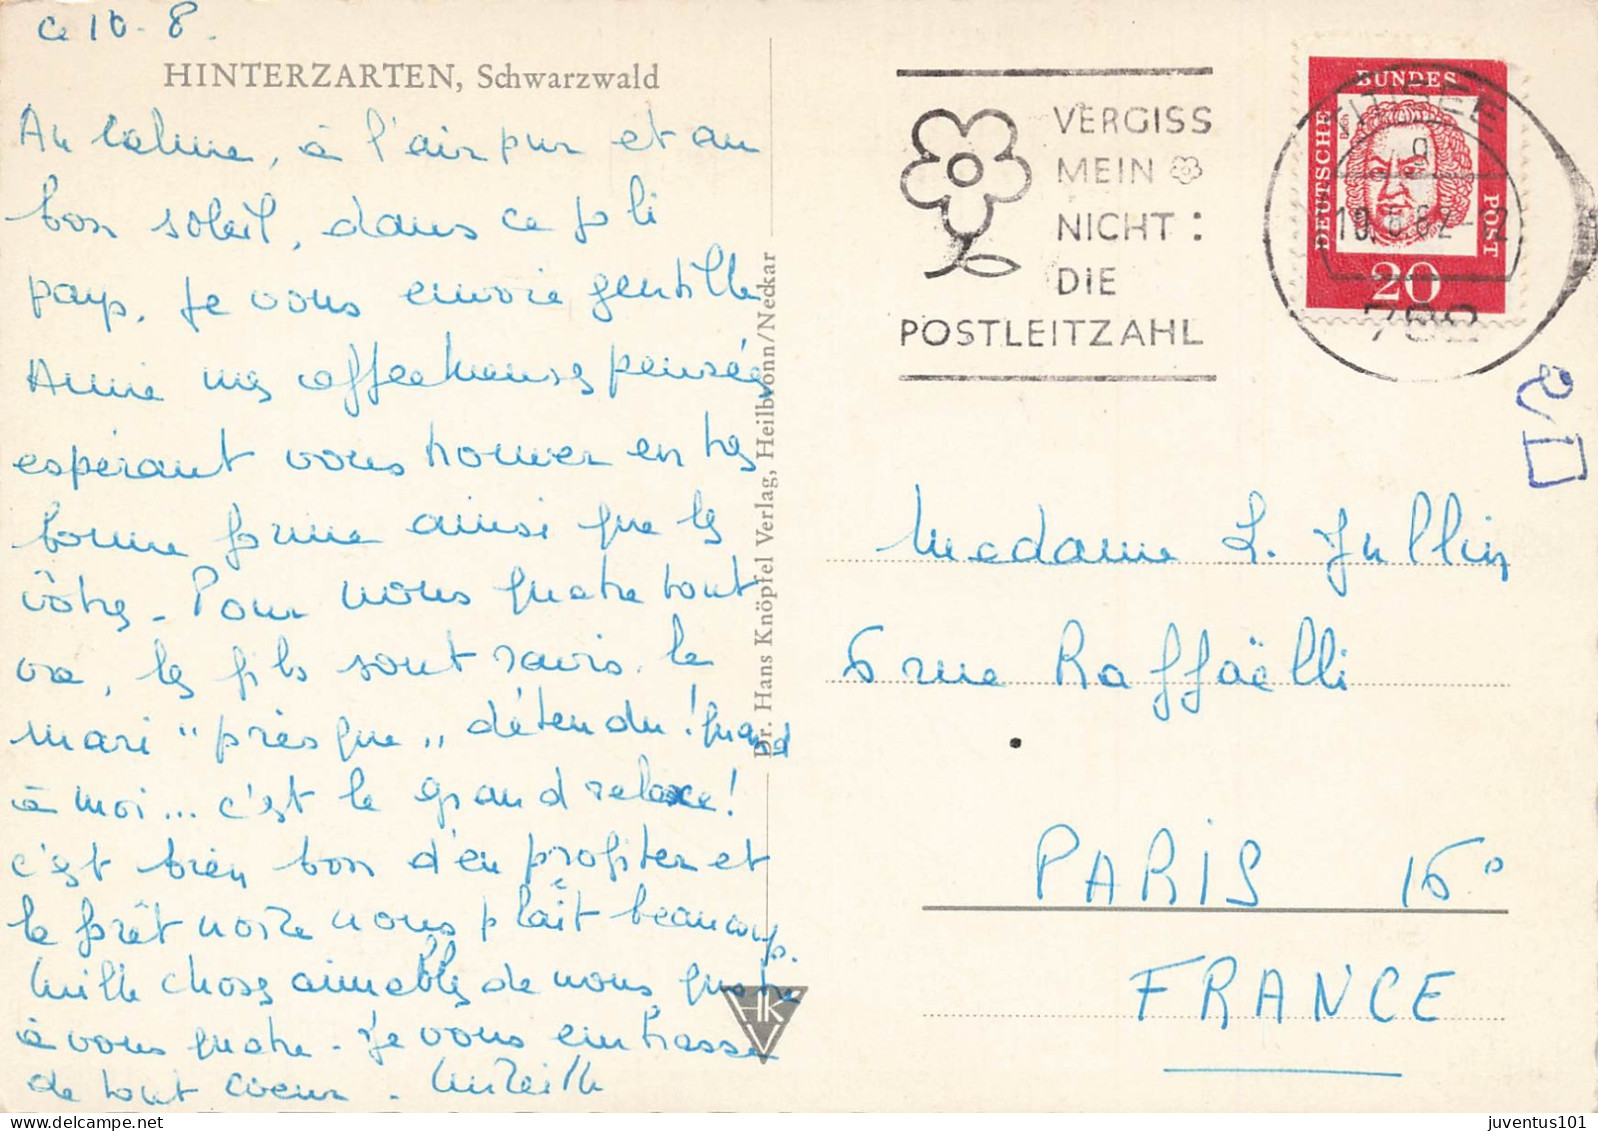 ce 10-8.
HINTERZARTEN, Schwarzwald
Au calme, à l'air pur et au
bon soleil, dans ce joli
pays, je vous envoie gentille
Annie mes affectueuses pensées
espérant vous trouver en très
bonne forme ainsi que les
vôtres. Pour nous quatre tout
va, les fils sont ravis. le
mari "présque" détendu! quand
à moi... c'est le grand relaxe!
c'est bien bon d'en profiter et
la forêt noire nous plaît beaucoup.
Mille choses aimables de nous quatre
à vous quatre. Je vous embrasse
de tout coeur. Mireille
Dr. Hans Knöpfel Verlag, Heilbronn/Neckar
HK
V
VERGISS
MEIN
NICHT:
DIE
POSTLEITZAHL
TITISEE
DEUTSCHE BUNDESPOST
20
Madame L. Jullin
6 rue Raffaëlli
PARIS 16°
FRANCE
juventus101